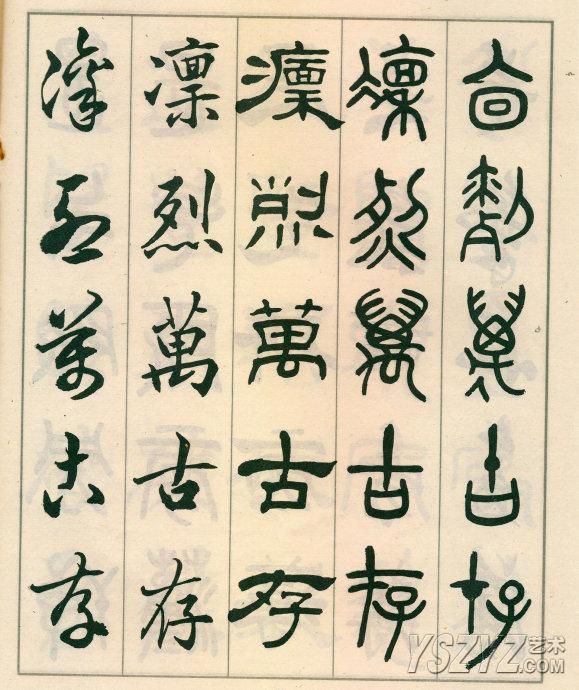 凛烈萬古存
凛烈萬古存
凛烈萬古存
凛烈萬古存
凛烈萬古存
YSZYZ艺术